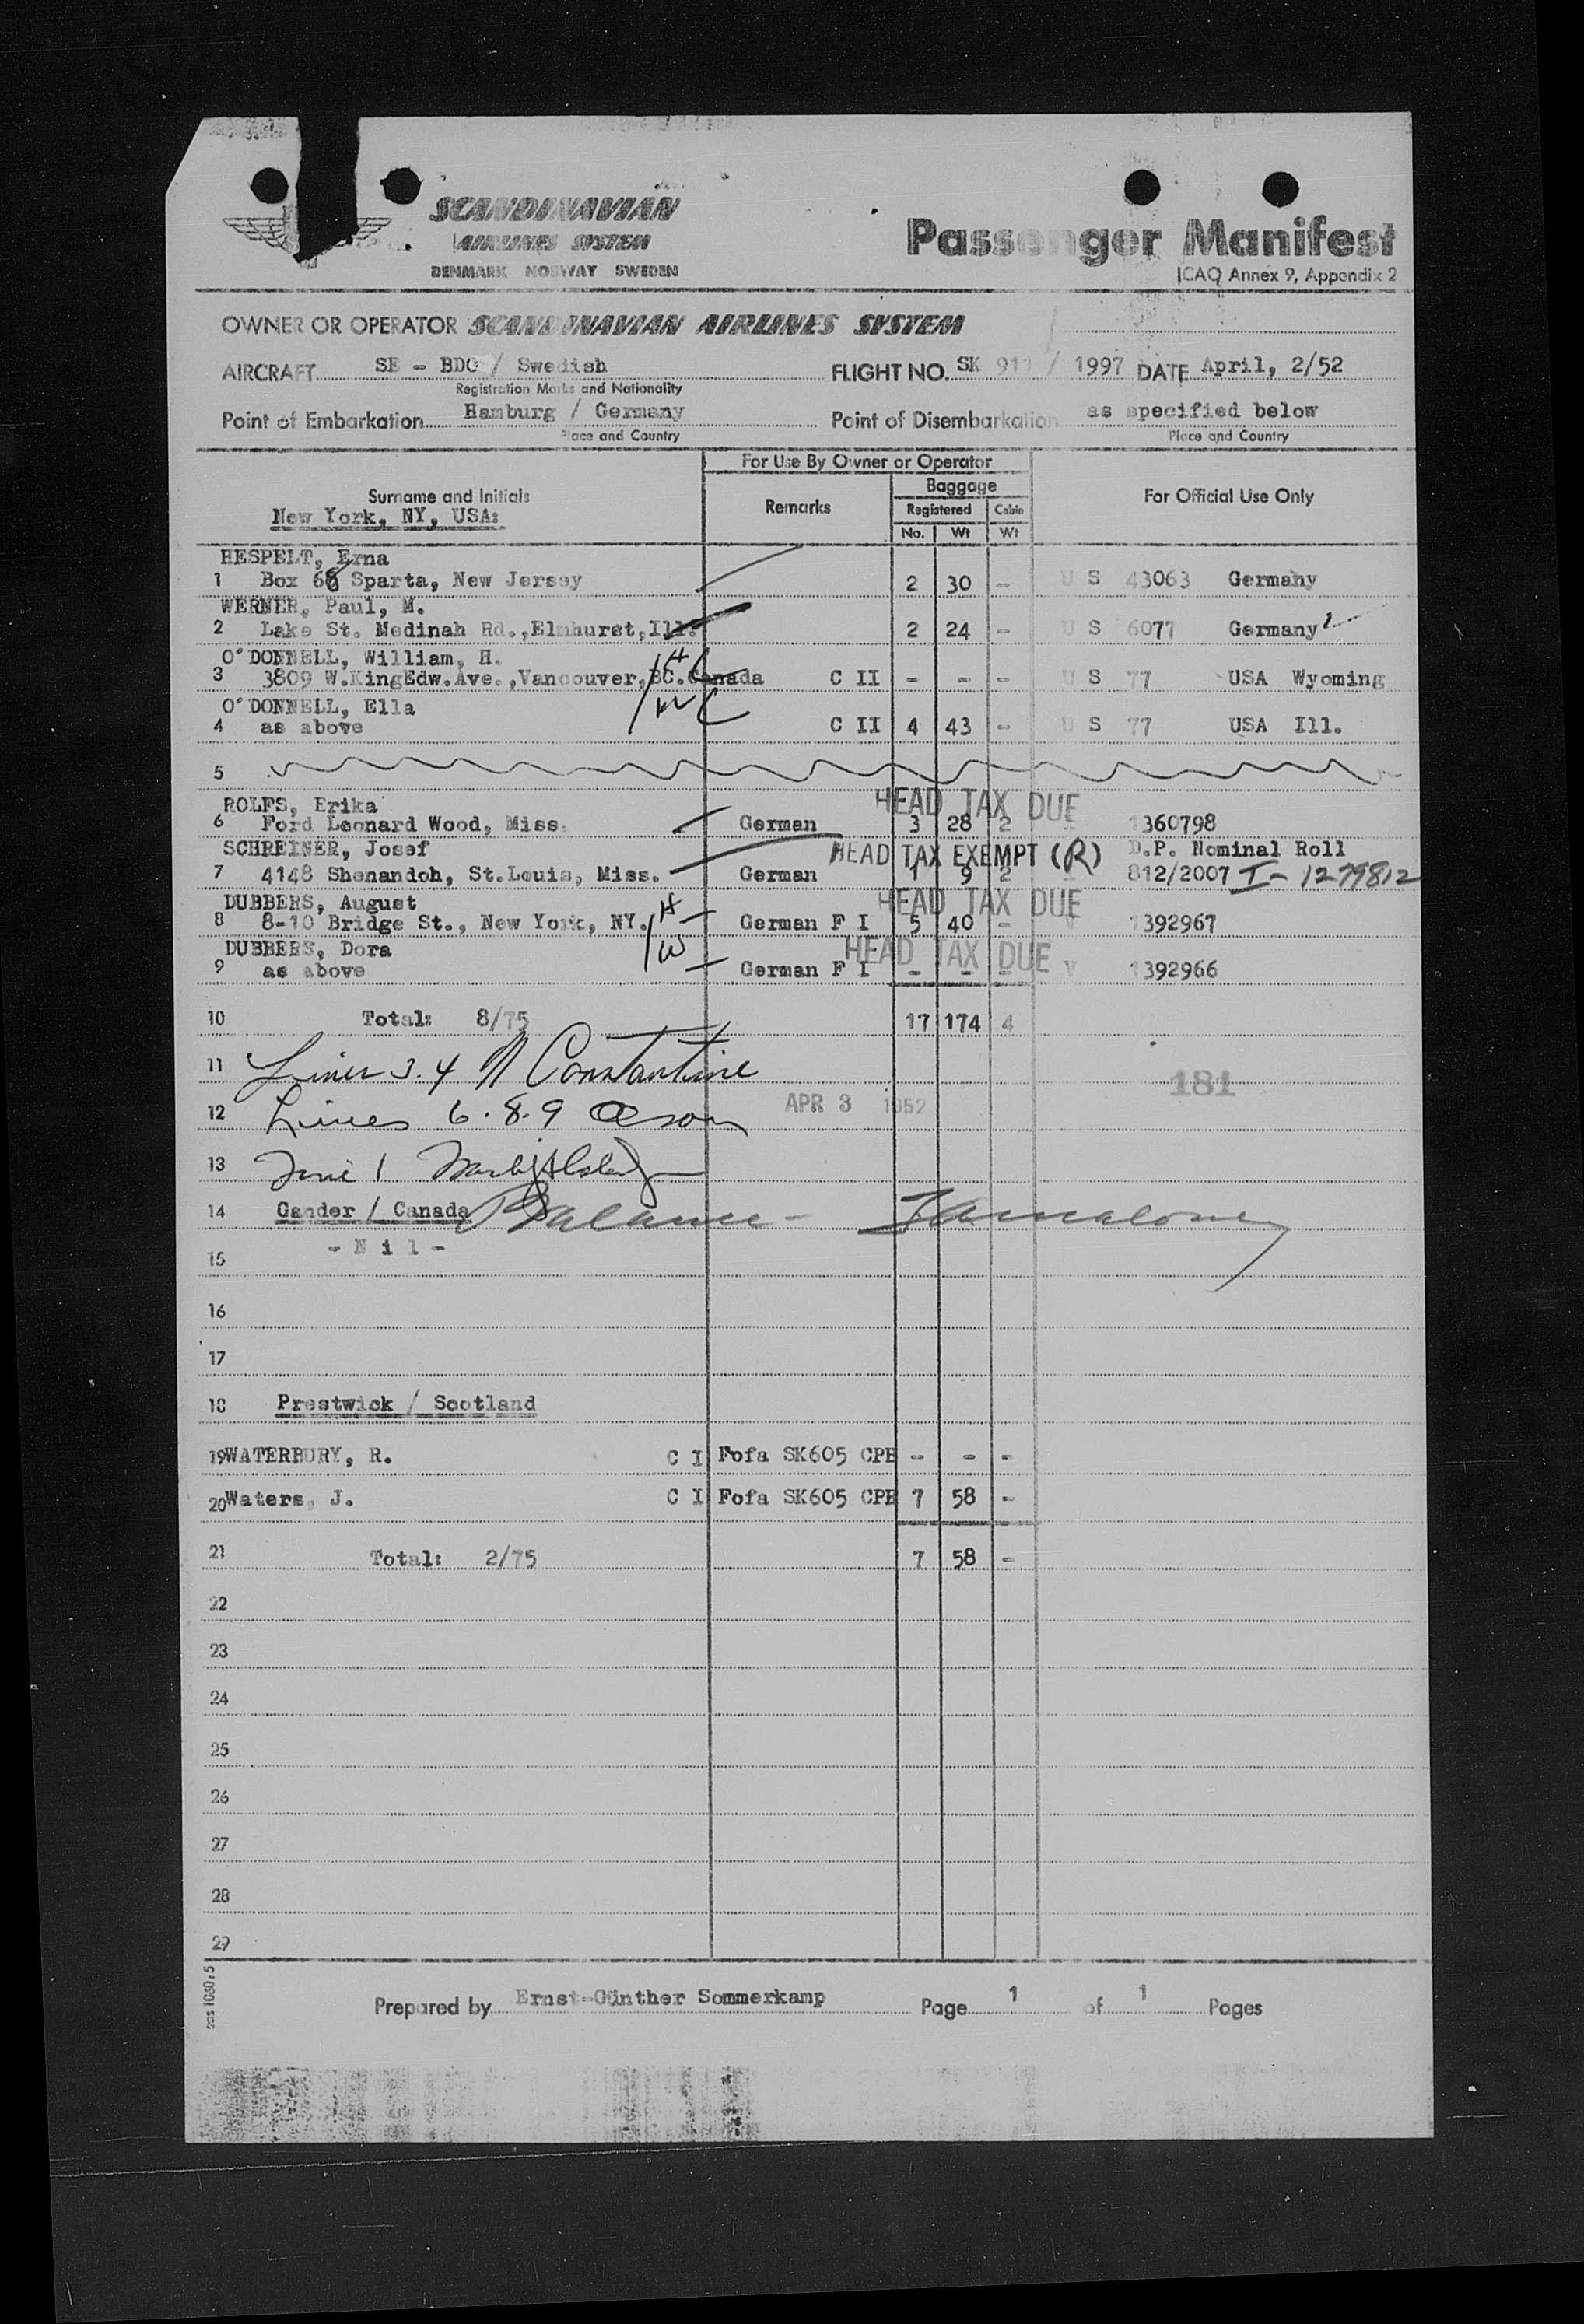 SCANDINAVIAN
AIRLINES SYSTEM
DENMARK NORWAY SWEDEN
Passenger Manifest
ICAO Annex 9, Appendix 2
OWNER OR OPERATOR SCANDINAVIAN AIRLINES SYSTEM
AIRCRAFT SE - BDO / Swedish FLIGHT NO. SK 911 / 1997 DATE April, 2/52
Registration Marks and Nationality
Point of Embarkation Hamburg / Germany Point of Disembarkation as specified below
Place and Country Place and Country
For Use By Owner or Operator
Baggage
Surname and Initials Remarks Registered Cabin For Official Use Only
New York, NY, USA:
No. Wt Wt
HESPELT, Erna
1 Box 68 Sparta, New Jersey 2 30 - U S 43063 Germany
WERNER, Paul, M.
2 Lake St. Medinah Rd.,Elmhurst,Ill. 2 24 - U S 6077 Germany
O'DONNELL, William, H.
3 3809 W.KingEdw.Ave.,Vancouver,BC.Canada C II - - - U S 77 USA Wyoming
O'DONNELL, Ella
4 as above C II 4 43 - U S 77 USA Ill.
5
ROLFS, Erika HEAD TAX DUE
6 Ford Leonard Wood, Miss. German 3 28 2 - 1360798
SCHREINER, Josef HEAD TAX EXEMPT (R) D.P. Nominal Roll
7 4148 Shenandoh, St.Louis, Miss. German 1 9 2 - 812/2007 I- 1279812
DUBBERS, August H HEAD TAX DUE
8 8-10 Bridge St., New York, NY. German F I 5 40 - V 1392967
DUBBERS, Dora W HEAD TAX DUE
9 as above German F I - - - V 1392966
10 Total: 8/75 17 174 4
11 Lines 3. 4 M Constantine
181
12 Lines 6. 8. 9 APR 3 1952
13 Line 1
14 Gander / Canada Balance -
- N i l -
15
16
17
18 Prestwick / Scotland
19 WATERBURY, R. C I Fofa SK605 CPH - - -
20 Waters, J. C I Fofa SK605 CPH 7 58 -
21 Total: 2/75 7 58 -
22
23
24
25
26
27
28
29
Prepared by Ernst-Günther Sommerkamp Page 1 of 1 Pages